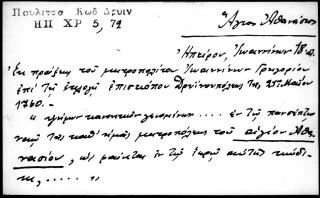 Πουλιτσα Κωδ Δρυιν
ΗΠ ΧΡ 5, 72
Ἅγιος Ἀθανάσιος
Ἠπείρου, Ἰωαννίνων
Ἐκ πράξεως τοῦ μητροπολίτου Ἰωαννίνων Γρηγορίου
ἐπὶ τῇ ἐκλογῇ ἐπισκόπου Δρυϊνουπόλεως τῆς 25ης Μαΐου
1760.-
" ψήφων κανονικῶν γενομένων .... ἐν τῇ πανσέπτῳ
ναῷ τῆς καθ' ἡμᾶς μητροπόλεως τοῦ ἁγίου Ἀθα
νασίου, ὡς φαίνεται ἐν τῷ ἱερῷ αὐτῆς κώδι-
κι, ..... "